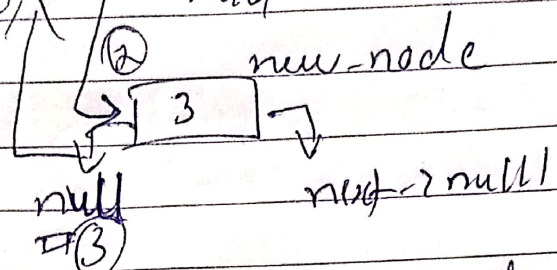 ② new-node
3
null next->null
③